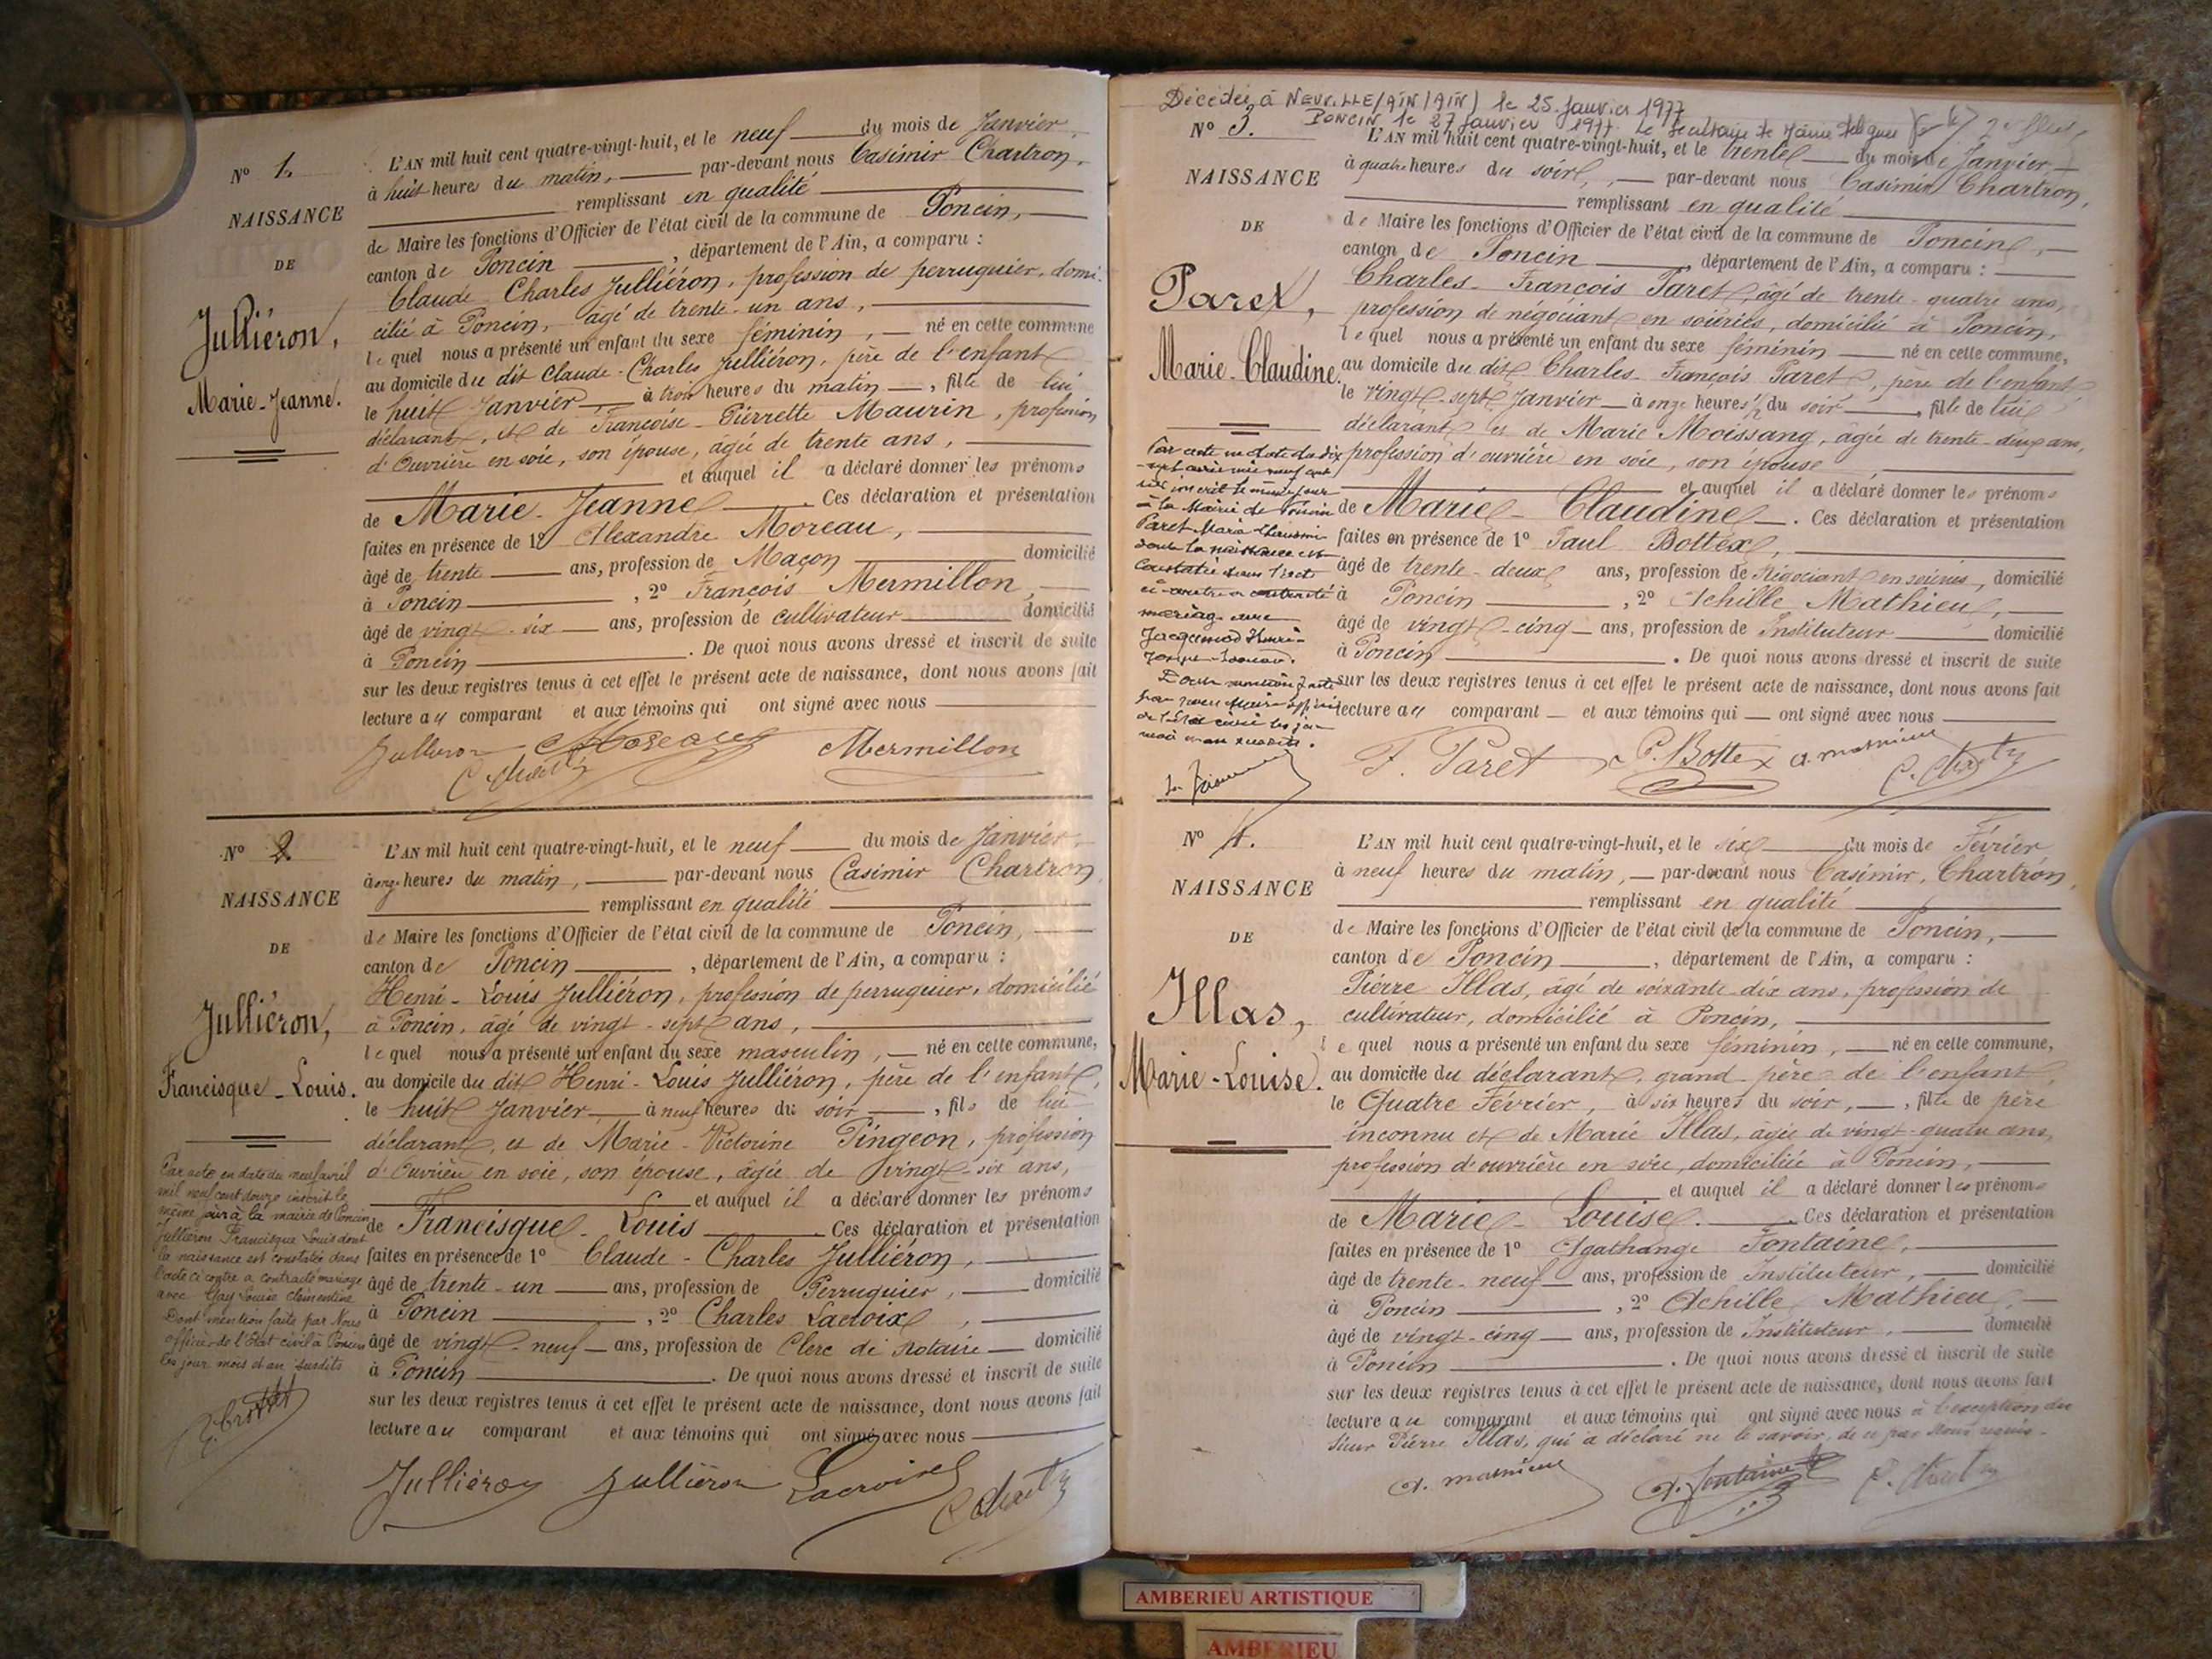 N° 1.
NAISSANCE
DE
Julliéron,
Marie-Jeanne.
L'AN mil huit cent quatre-vingt-huit, et le neuf du mois de Janvier,
à huit heures du matin, par-devant nous Casimir Chartron,
remplissant en qualité
de Maire les fonctions d'Officier de l'état civil de la commune de Poncin,
canton de Poncin, département de l'Ain, a comparu :
Claude-Charles Julliéron, profession de perruquier, domi-
cilié à Poncin, âgé de trente-un ans,
lequel nous a présenté un enfant du sexe féminin, né en cette commune
au domicile du dit Claude-Charles Julliéron, père de l'enfant
le huit Janvier à trois heures du matin, fille de lui
déclarant, et de Françoise-Pierrette Maurin, profession
d'Ouvrière en soie, son épouse, âgée de trente ans,
et auquel il a déclaré donner les prénoms
de Marie-Jeanne. Ces déclaration et présentation
faites en présence de 1° Alexandre Moreau,
âgé de trente ans, profession de Maçon domicilié
à Poncin, 2° François Mermillon,
âgé de vingt-six ans, profession de cultivateur domicilié
à Poncin. De quoi nous avons dressé et inscrit de suite
sur les deux registres tenus à cet effet le présent acte de naissance, dont nous avons fait
lecture au comparant et aux témoins qui ont signé avec nous
Julliéron Moreau Mermillon
N° 2
NAISSANCE
DE
Julliéron,
Francisque-Louis.
Par acte en date du neuf avril
mil neuf cent douze inscrit le
même jour à la mairie de Poncin
Julliéron Francisque Louis dont
la naissance est constatée dans
l'acte ci contre a contracté mariage
avec Gay Louise Clémentine
Dont mention faite par Nous
officier de l'Etat civil à Poncin
les jour mois et an susdits
L'AN mil huit cent quatre-vingt-huit, et le neuf du mois de Janvier,
à onze heures du matin, par-devant nous Casimir Chartron,
remplissant en qualité
de Maire les fonctions d'Officier de l'état civil de la commune de Poncin,
canton de Poncin, département de l'Ain, a comparu :
Henri-Louis Julliéron, profession de perruquier, domicilié
à Poncin, âgé de vingt-sept ans,
lequel nous a présenté un enfant du sexe masculin, né en cette commune,
au domicile du dit Henri-Louis Julliéron, père de l'enfant,
le huit Janvier à neuf heures du soir, fils de lui
déclarant, et de Marie-Victorine Pingeon, profession
d'Ouvrière en soie, son épouse, âgée de vingt-six ans,
et auquel il a déclaré donner les prénoms
de Francisque-Louis Ces déclaration et présentation
faites en présence de 1° Claude-Charles Julliéron,
âgé de trente-un ans, profession de Perruquier, domicilié
à Poncin, 2° Charles Lacroix,
âgé de vingt-neuf ans, profession de Clerc de Notaire domicilié
à Poncin. De quoi nous avons dressé et inscrit de suite
sur les deux registres tenus à cet effet le présent acte de naissance, dont nous avons fait
lecture au comparant et aux témoins qui ont signé avec nous
Julliéron Julliéron Lacroix
Décédée à NEUVILLE/AIN (AIN) le 25 Janvier 1977
PONCIN, le 27 Janvier 1977. Le secrétaire de Mairie
N° 3.
NAISSANCE
DE
Paret,
Marie-Claudine.
Par acte en date du dix
à la Mairie de Poncin
dont la naissance est
constatée dans l'acte
ci-contre a contracté
mariage avec
Jacquemod
Dont mention faite
L'AN mil huit cent quatre-vingt-huit, et le trente du mois de Janvier
à quatre heures du soir, par-devant nous Casimir Chartron,
remplissant en qualité
de Maire les fonctions d'Officier de l'état civil de la commune de Poncin,
canton de Poncin département de l'Ain, a comparu :
Charles-François Paret, âgé de trente-quatre ans,
profession de négociant en soieries, domicilié à Poncin,
lequel nous a présenté un enfant du sexe féminin né en cette commune,
au domicile du dit Charles-François Paret, père de l'enfant,
le vingt-sept Janvier à onze heures ½ du soir, fille de lui
déclarant et de Marie Moissang, âgée de trente-deux ans,
profession d'ouvrière en soie, son épouse
et auquel il a déclaré donner les prénoms
de Marie-Claudine. Ces déclaration et présentation
faites en présence de 1° Paul Bottex,
âgé de trente-deux ans, profession de Négociant en soieries, domicilié
à Poncin, 2° Achille Mathieu,
âgé de vingt-cinq ans, profession de Instituteur domicilié
à Poncin. De quoi nous avons dressé et inscrit de suite
sur les deux registres tenus à cet effet le présent acte de naissance, dont nous avons fait
lecture au comparant et aux témoins qui ont signé avec nous
F. Paret P. Bottex A. Mathieu
N° 4.
NAISSANCE
DE
Illas,
Marie-Louise.
L'AN mil huit cent quatre-vingt-huit, et le six du mois de Février
à neuf heures du matin, par-devant nous Casimir Chartron,
remplissant en qualité
de Maire les fonctions d'Officier de l'état civil de la commune de Poncin,
canton de Poncin, département de l'Ain, a comparu :
Pierre Illas, âgé de soixante-dix ans, profession de
cultivateur, domicilié à Poncin,
lequel nous a présenté un enfant du sexe féminin, né en cette commune,
au domicile du déclarant, grand-père de l'enfant,
le Quatre Février, à six heures du soir, fille de père
inconnu et de Marie Illas, âgée de vingt-quatre ans,
profession d'ouvrière en soie, domiciliée à Poncin,
et auquel il a déclaré donner les prénoms
de Marie-Louise. Ces déclaration et présentation
faites en présence de 1° Agathange Fontaine,
âgé de trente-neuf ans, profession de Instituteur, domicilié
à Poncin, 2° Achille Mathieu,
âgé de vingt-cinq ans, profession de Instituteur, domicilié
à Poncin. De quoi nous avons dressé et inscrit de suite
sur les deux registres tenus à cet effet le présent acte de naissance, dont nous avons fait
lecture au comparant et aux témoins qui ont signé avec nous à l'exception du
sieur Pierre Illas, qui a déclaré ne le savoir, de ce par Nous requis.
A. Mathieu A. Fontaine
AMBERIEU ARTISTIQUE
AMBERIEU